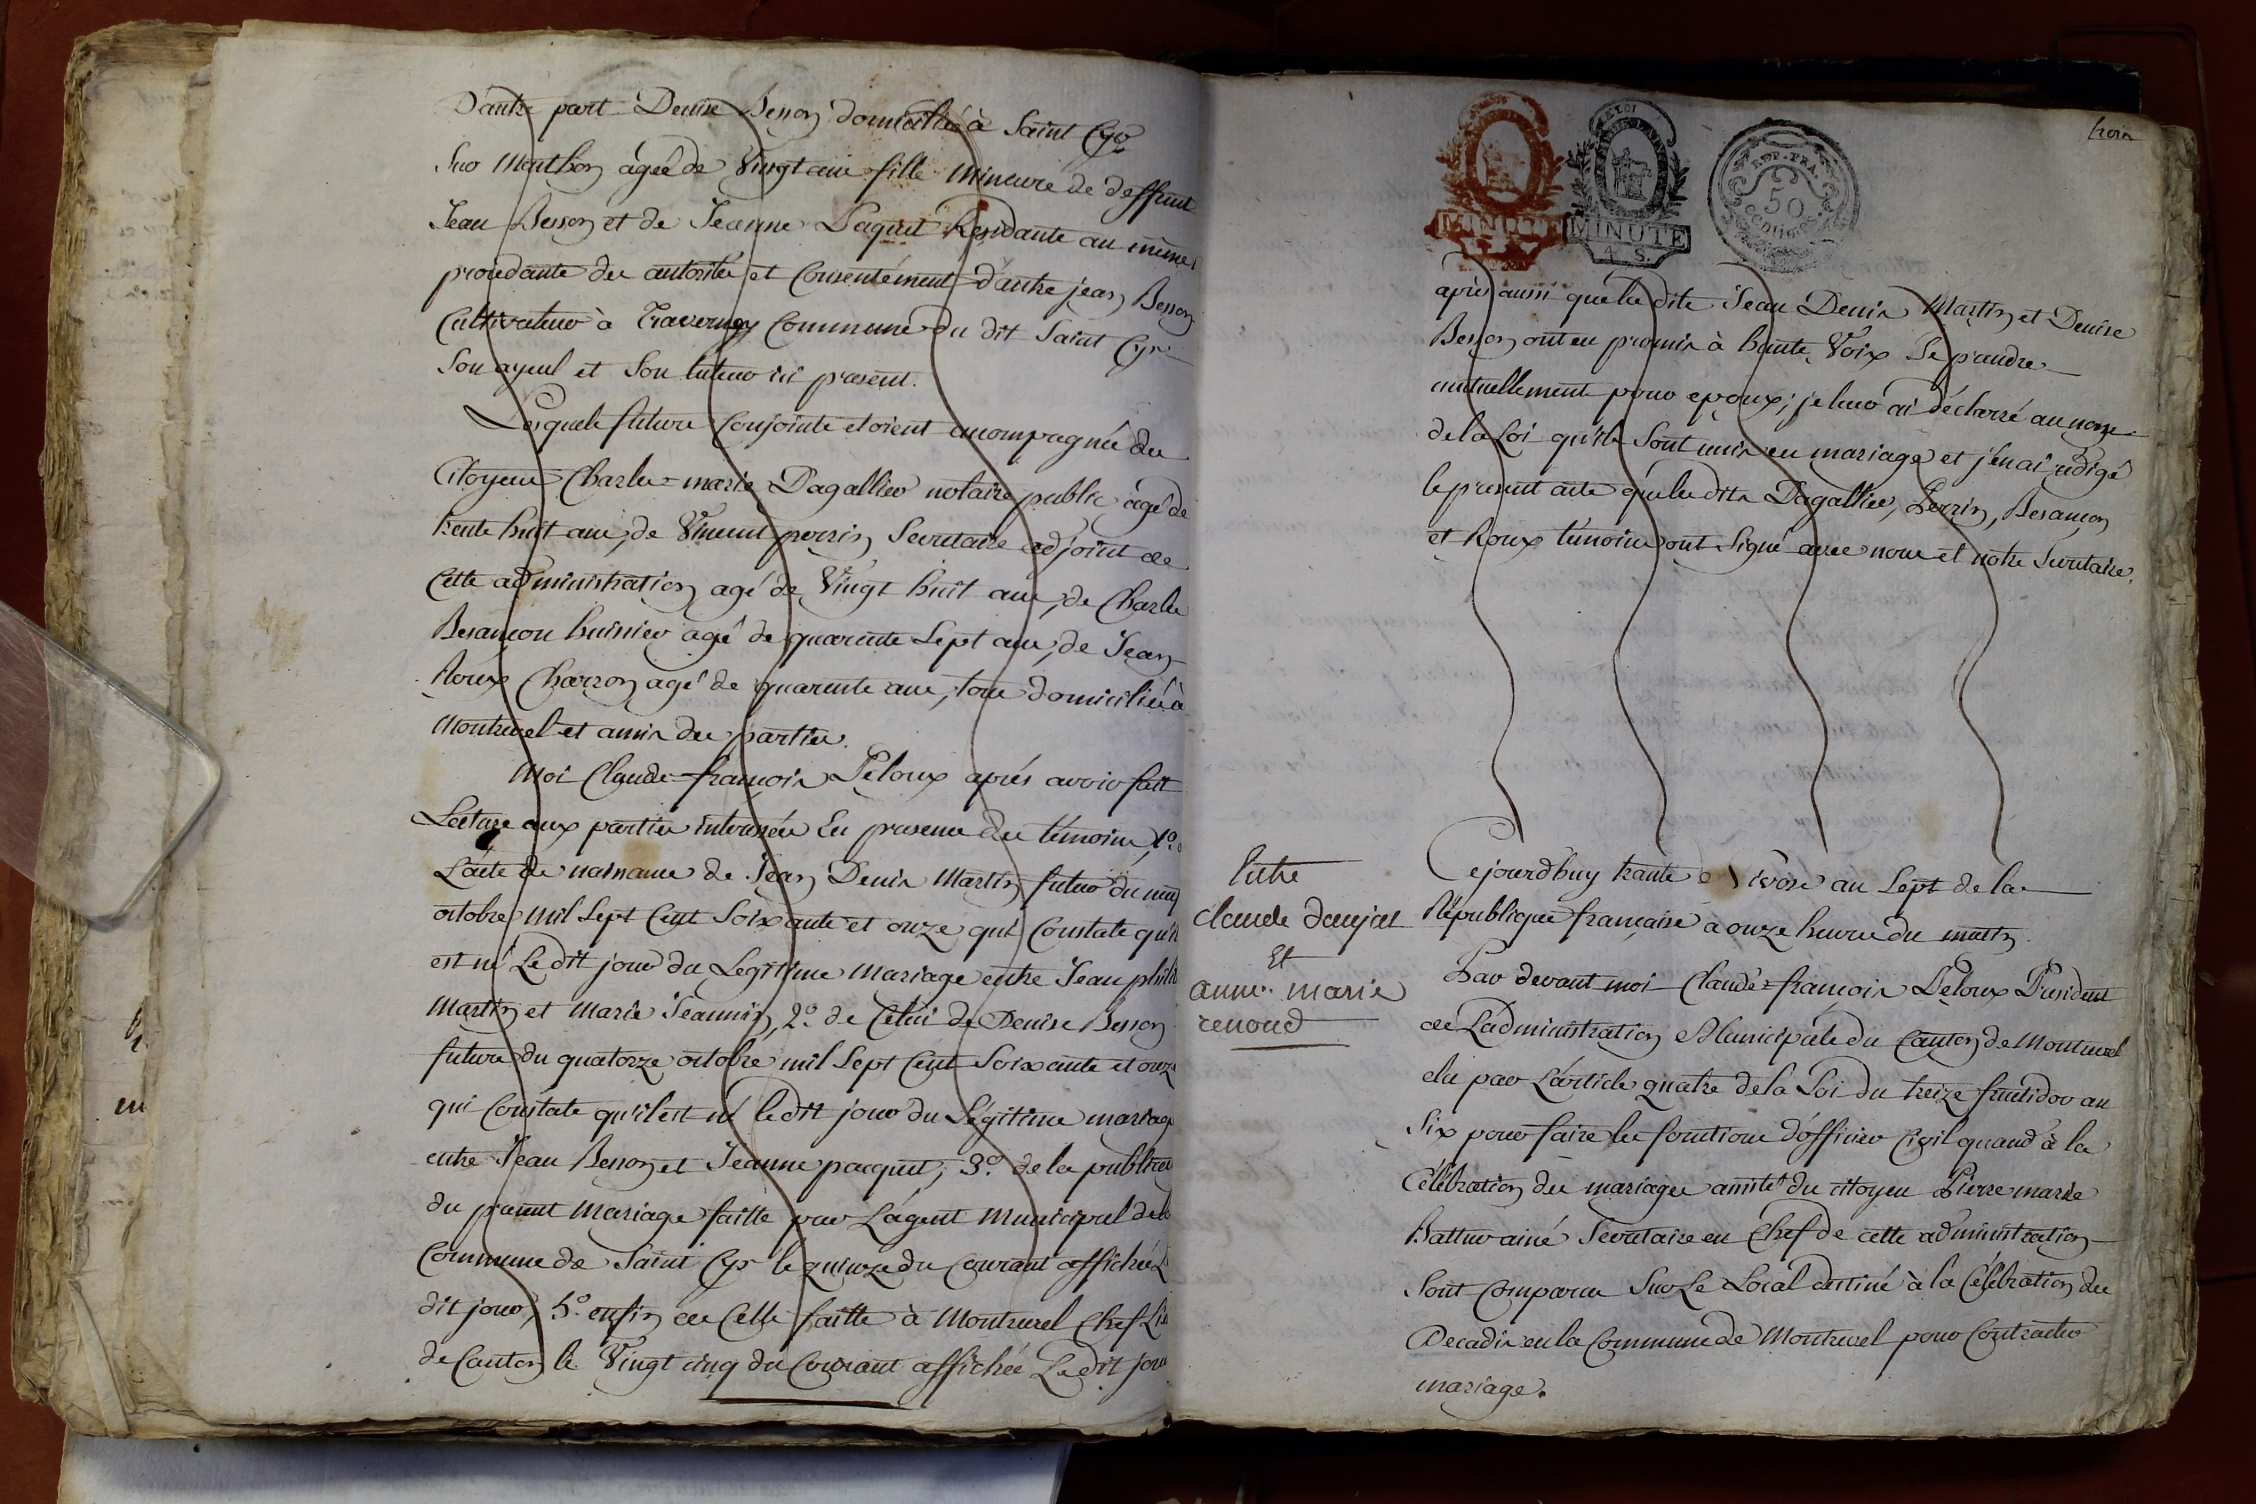 D'autre part Denise Besson domiciliée à Saint Cyr
sur Menthon agée de Vingt ans fille Mineure de deffunt
Jean Besson et de Jeanne Paquet Residante au même
procédante de autorité et Consentément d'autre jean Besson
Cultivateur à Travernay Commune du dit Saint Cyr
Son ayeul et Son tuteur ici présent.
Lesquels futurs Conjoints etoient accompagnés des
Citoyens Charles=marie Dagallier notaire public agé de
trente huit ans, de Vincent perrin Secrétaire adjoint de
Cette administration agé de Vingt huit ans, de Charles
Besançon huissier agé de quarente Sept ans, de Jean
Roux Charron agé de quarente ans, tous domiciliés à
Montrevel et amis des parties.
Moi Claude=françois Péloux aprés avoir fait
Lecture aux parties intéressées En presence des témoins, 1º.
L'acte de naissance de Jean Denis Martin futur du neuf
octobre mil Sept Cent Soixante et onze qui Constate qu'il
est né Le dit jour du Legitime Mariage entre Jean
Martin et Marie Jeannin, 2º. de Celui de Denise Besson
future du quatorze octobre mil Sept Cent Soixante et onze
qui Constate qu'il est né le dit jour du Légitime mariage
entre Jean Besson et Jeanne pacquet; 3º. de la
du présent Mariage faitte par L'ágent Municipal de la
Commune de Saint Cyr le quinze du Courant affichée
dit jour, 5º. enfin de Celle faitte à Montrevel Chef Lieu
de Canton le Vingt cinq du Courant affichée Le dit jour
trois
MINUTE
LA LOI
MINUTE
4 S.
REP. FRA.
50
CENTIMES
après aussi que les dits Jean Denis Martin et Denise
Besson ont eu promis à haute Voix Se prandre
mutuellement pour epoux; je leur ai déclarré au nom
de la Loi qu'ils Sont unis en mariage et j'en ai rédigé
le présent acte que les dits Dagallier, Perrin, Besançon
et Roux témoins ont Signé avec nous et notre Secrétaire.
Entre
claude daujat
Et
anne. marie
renoud
Cejourd'huy trante Nivose an Sept de la
République française a onze heures du matin
Par devant moi Claude=françois Péloux Président
de L'administration Municipale du Canton de Montrevel
élu par L'article quatre de la Loi du treize fructidor an
Six pour faire les fonctions d'officier Civil quand à la
Célébration des mariages assisté du citoyen Pierre marie
Battur ainé Secrétaire en Chef de cette administration
Sont Comparus Sur Le Local destiné à la Célébration des
Decadis en la Commune de Montrevel pour Contracter
mariage.